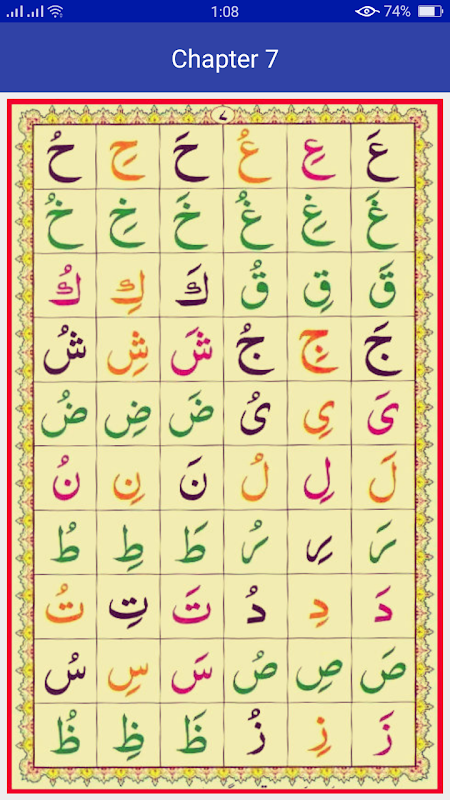 1:08 74%
Chapter 7
٧
عَ عِ عُ حَ حِ حُ
غَ غِ غُ خَ خِ خُ
قَ قِ قُ كَ كِ كُ
جَ جِ جُ شَ شِ شُ
یَ یِ یُ ضَ ضِ ضُ
لَ لِ لُ نَ نِ نُ
رَ رِ رُ طَ طِ طُ
دَ دِ دُ تَ تِ تُ
صَ صِ صُ سَ سِ سُ
زَ زِ زُ ظَ ظِ ظُ